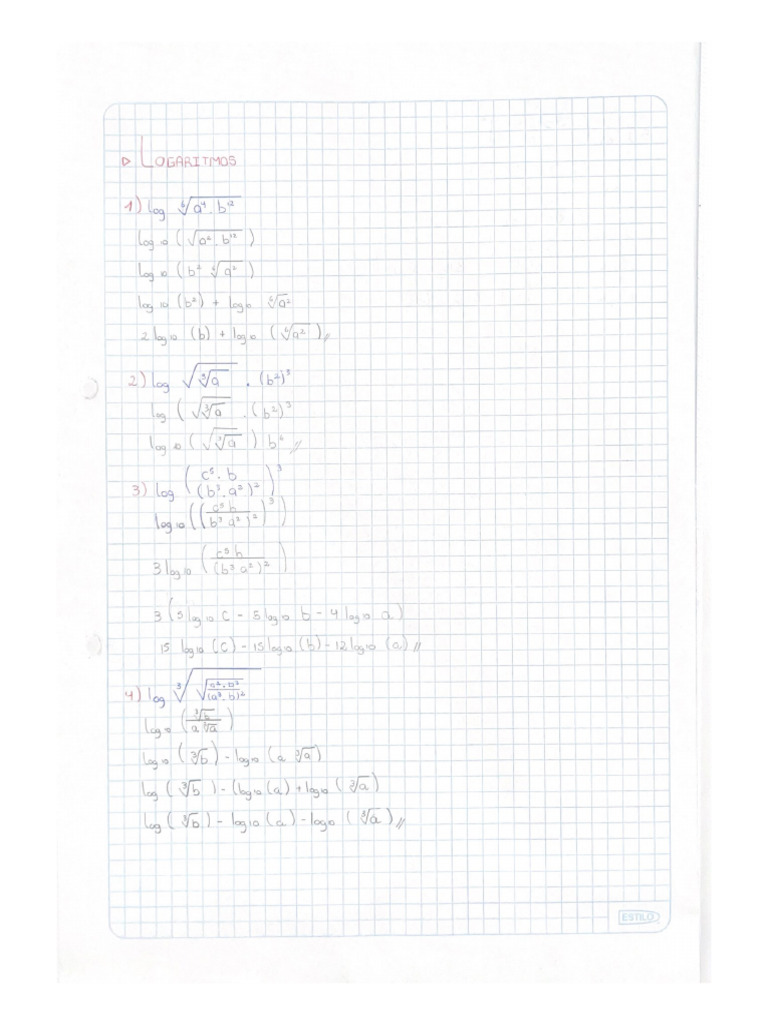 ▷ LOGARITMOS
1) log ⁶√(a⁴. b¹²)
log₁₀ (√(a⁴. b¹²))
log₁₀ (b² ⁶√(a²))
log₁₀ (b²) + log₁₀ ⁶√a²
2 log₁₀ (b) + log₁₀ (⁶√(a²))//
2) log √(³√a) . (b²)³
log (√(³√a) . (b²)³
log₁₀ (√(³√a)) b⁶//
3) log (c⁵. b / (b³. a²)²)³
log₁₀ ((c⁵ b / (b³ a²)²)³)
3 log₁₀ (c⁵ b / (b³ a²)²)
3 (5 log₁₀ c - 5 log₁₀ b - 4 log₁₀ a)
15 log₁₀ (c) - 15 log₁₀ (b) - 12 log₁₀ (a)//
4) log ³√
log₁₀ (³√b / a ³√a)
log₁₀ (³√b) - log₁₀ (a ³√a)
log (³√b) - (log₁₀ (a) + log₁₀ (³√a)
log (³√b) - log₁₀ (a) - log₁₀ (³√a)//
ESTILO